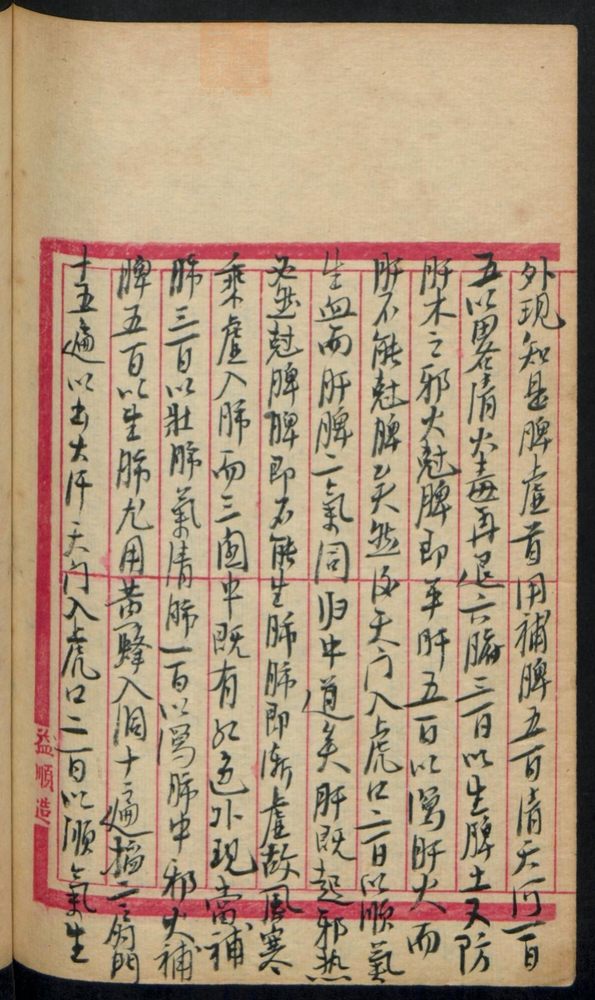 外現知是脾虛首用補脾五百清天河一百
五以畧清火毒再退六腑三百以生脾土又防
肝木之邪火尅脾即平肝五百以瀉肝火而
肝不能尅脾矣然後天门入虎口二百以順氣
生血而肝脾二氣同归中道矣肝既起邪热
必盛尅脾脾即不能生肺肺即漸虛故風寒
乘虛入肺而三関中既有红色外現當補
肺三百以壯肺氣清肺一百以瀉肺中邪火補
脾五百以生肺尤用黃蜂入洞十遍掐二扇門
十五遍以出大汗天门入虎口二百以順氣生
益順造